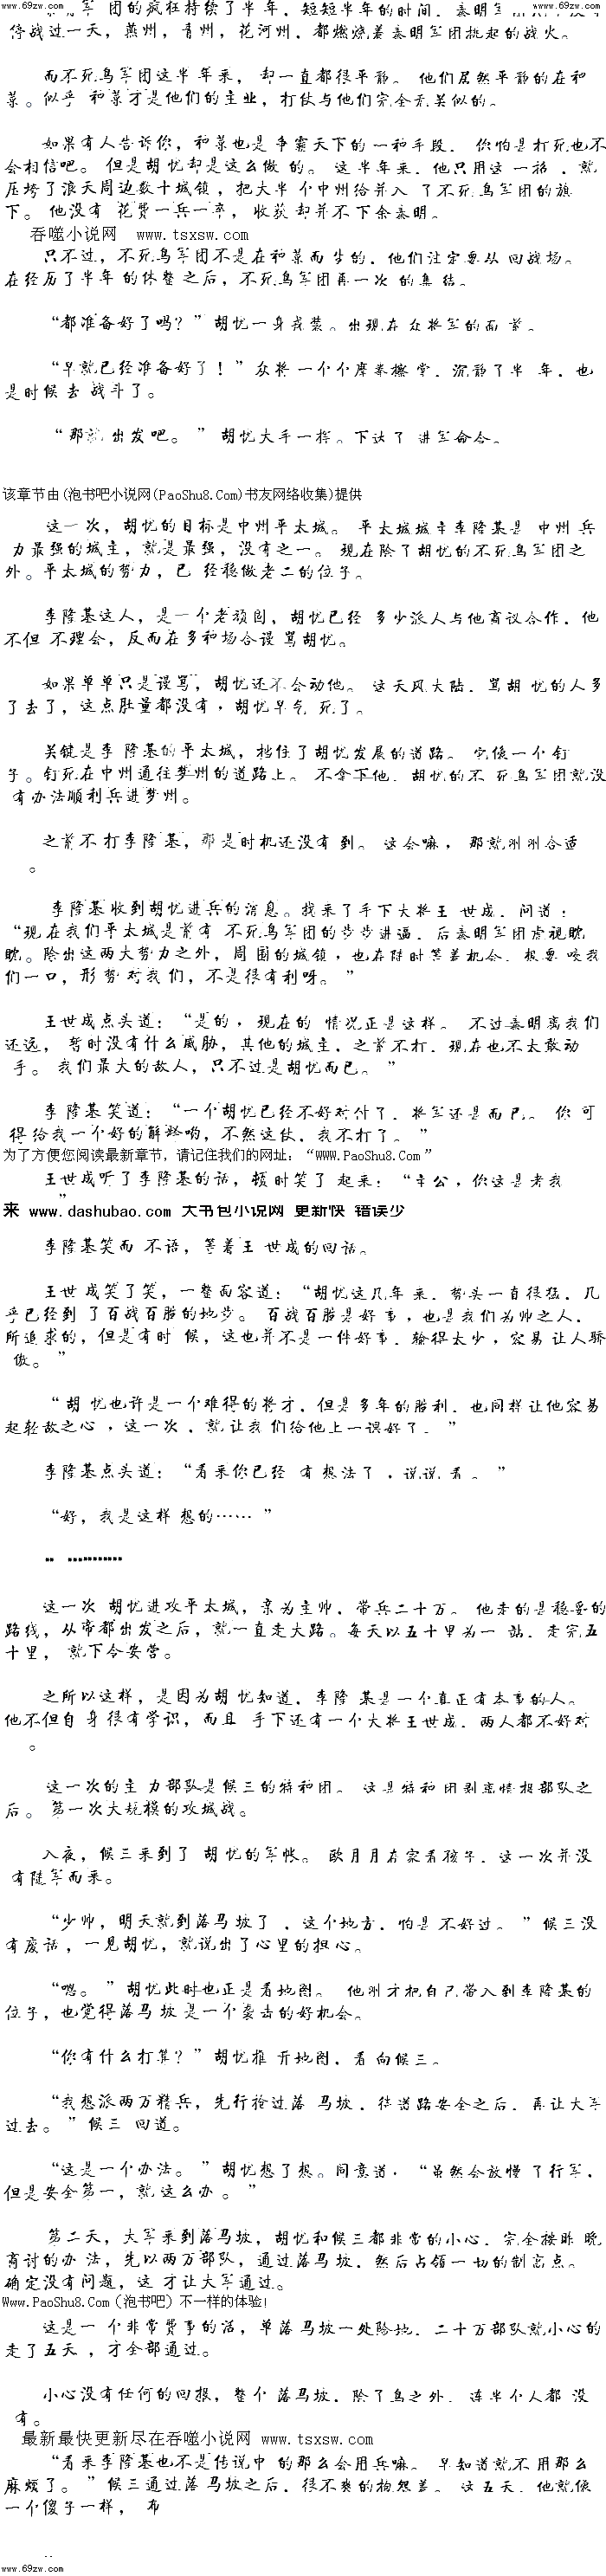 www.69zw.com www.69zw.com
团的疯狂持续了半年．短短半年的时间．秦明
停战过一天，燕州，青州，花河州．都燃烧着秦明军团挑起的战火。
而不死鸟军团这半年来，却一直都很平静。他们居然平静的在种
菜。似乎种菜才是他们的主业，打仗与他们完全无关似的。
如果有人告诉你，种菜也是争霸天下的一种手段．你怕是打死也不
会相信吧。但是胡忧却是这么做的。这半年来．他只用这一招．就
压垮了浪天周边数十城镇，把大半个中州给并入了不死鸟军团的旗
下。他没有花费一兵一卒，收获却并不下余秦明。
吞噬小说网 www.tsxsw.com
只不过，不死鸟军团不是在种菜而生的．他们注定要从回战场。
在经历了半年的休整之后，不死鸟军团再一次的集结。
“都准备好了吗？”胡忧一身戎装。出现在众将军的面前。
“早就已经准备好了！”众将一个个摩拳擦掌．沉静了半年．也
是时候去战斗了。
“那就出发吧。”胡忧大手一挥。下达了进军命令。
该章节由(泡书吧小说网(PaoShu8.Com)书友网络收集)提供
这一次，胡忧的目标是中州平太城。平太城城主李隆基是中州兵
力最强的城主，就是最强，没有之一。现在除了胡忧的不死鸟军团之
外。平太城的势力，已经稳做老二的位子。
李隆基这人，是一个老顽固，胡忧已经多少派人与他商议合作．他
不但不理会，反而在多种场合谩骂胡忧。
如果单单只是谩骂，胡忧还不会动他。这天风大陆．骂胡忧的人多
了去了，这点肚量都没有，胡忧早气死了。
关键是李隆基的平太城，档住了胡忧发展的道路。完像一个钉
子。钉死在中州通往梦州的道路上。不拿下他．胡忧的不死鸟军团就没
有办法顺利兵进梦州。
之前不打李隆基，那是时机还没有到。这会嘛，那就刚刚合适
。
李隆基收到胡忧进兵的消息。找来了手下大将王世成．问道：
“现在我们平太城是前有不死鸟军团的步步进逼．后秦明军团虎视眈
眈。除出这两大势力之外，周围的城镇，也在随时等着机会．想要咬我
们一口，形势对我们，不是很有利呀。”
王世成点头道：“是的，现在的情况正是这样。不过秦明离我们
还远，暂时没有什么威胁，其他的城主．之前不打．现在也不太敢动
手。我们最大的敌人，只不过是胡忧而已。”
李隆基笑道：“一个胡忧已经不好对付了．将军还是而已。你可
得给我一个好的解释哟，不然这仗．我不打了。”
为了方便您阅读最新章节，请记住我们的网址：“WWW.PaoShu8.Com”
王世成听了李隆基的话，顿时笑了起来：“主公，你这是考我
”
来 www.dashubao.com 大书包小说网 更新快 错误少
李隆基笑而不语，等着王世成的回话。
王世成笑了笑，一整面容道：“胡忧这几年来．势头一直很猛．几
乎已经到了百战百胜的地步。百战百胜是好事，也是我们为帅之人．
所追求的，但是有时候，这也并不是一件好事．输得太少，容易让人骄
傲。”
“胡忧也许是一个难得的将才．但是多年的胜利．也同样让他容易
起轻敌之心，这一次．就让我们给他上一课好了．”
李隆基点头道：“看来你已经有想法了，说说看。”
“好，我是这样想的……”
.. ...........
这一次胡忧进攻平太城，亲为主帅．带兵二十万。他走的是稳妥的
路线，从帝都出发之后，就一直走大路。每天以五十里为一站．走完五
十里，就下令安营。
之所以这样，是因为胡忧知道．李隆基是一个真正有本事的人。
他不但自身很有学识，而且手下还有一个大将王世成．两人都不好对
。
这一次的主力部队是候三的特种团。这是特种团剥离情报部队之
后。第一次大规模的攻城战。
入夜，候三来到了胡忧的军帐。欧月月在家看孩子．这一次并没
有随军而来。
“少帅，明天就到落马坡了．这个地方．怕是不好过。”候三没
有废话，一见胡忧，就说出了心里的担心。
“嗯。”胡忧此时也正是看地图。他刚才把自己带入到李隆基的
位子，也觉得落马坡是一个袭击的好机会。
“你有什么打算？”胡忧推开地图．看向候三。
“我想派两万精兵，先行抢过落马坡．待道路安全之后．再让大军
过去。”候三回道。
“这是一个办法。”胡忧想了想。同意道．“虽然会放慢了行军．
但是安全第一，就这么办。”
第二天，大军来到落马坡，胡忧和候三都非常的小心．完全按昨晚
商讨的办法，先以两万部队，通过落马坡．然后占领一切的制高点。
确定没有问题，这才让大军通过。
Www.PaoShu8.Com (泡书吧）不一样的体验!
这是一个非常费事的活，单落马坡一处险地．二十万部队就小心的
走了五天，才全部通过。
小心没有任何的回报，整个落马坡．除了鸟之外．连半个人都没
有。
最新最快更新尽在吞噬小说网 www.tsxsw.com
“看来李隆基也不是传说中的那么会用兵嘛。早知道就不用那么
麻烦了。”候三通过落马坡之后．很不爽的抱怨着。这五天．他就像
一个傻子一样，布
..
www.69zw.com www.69zw.com